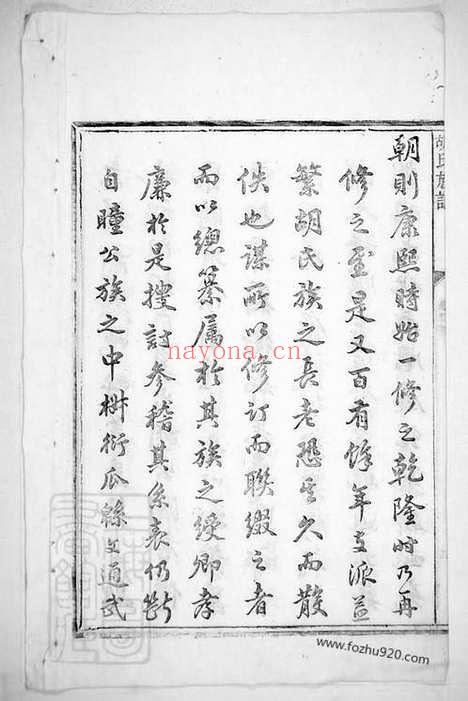 胡氏族譜
朝則康熙時始一修之乾隆時乃再
修之至是又百有餘年支派益
繁胡氏族之長老恐其久而散
佚也謀所以修訂而聯綴之者
而以總纂属於其族之綬卿孝
廉於是搜討參稽其系表仍斷
自瞳公族之中椒衍瓜緜文通武
nayona.cn
www.fozhu920.com